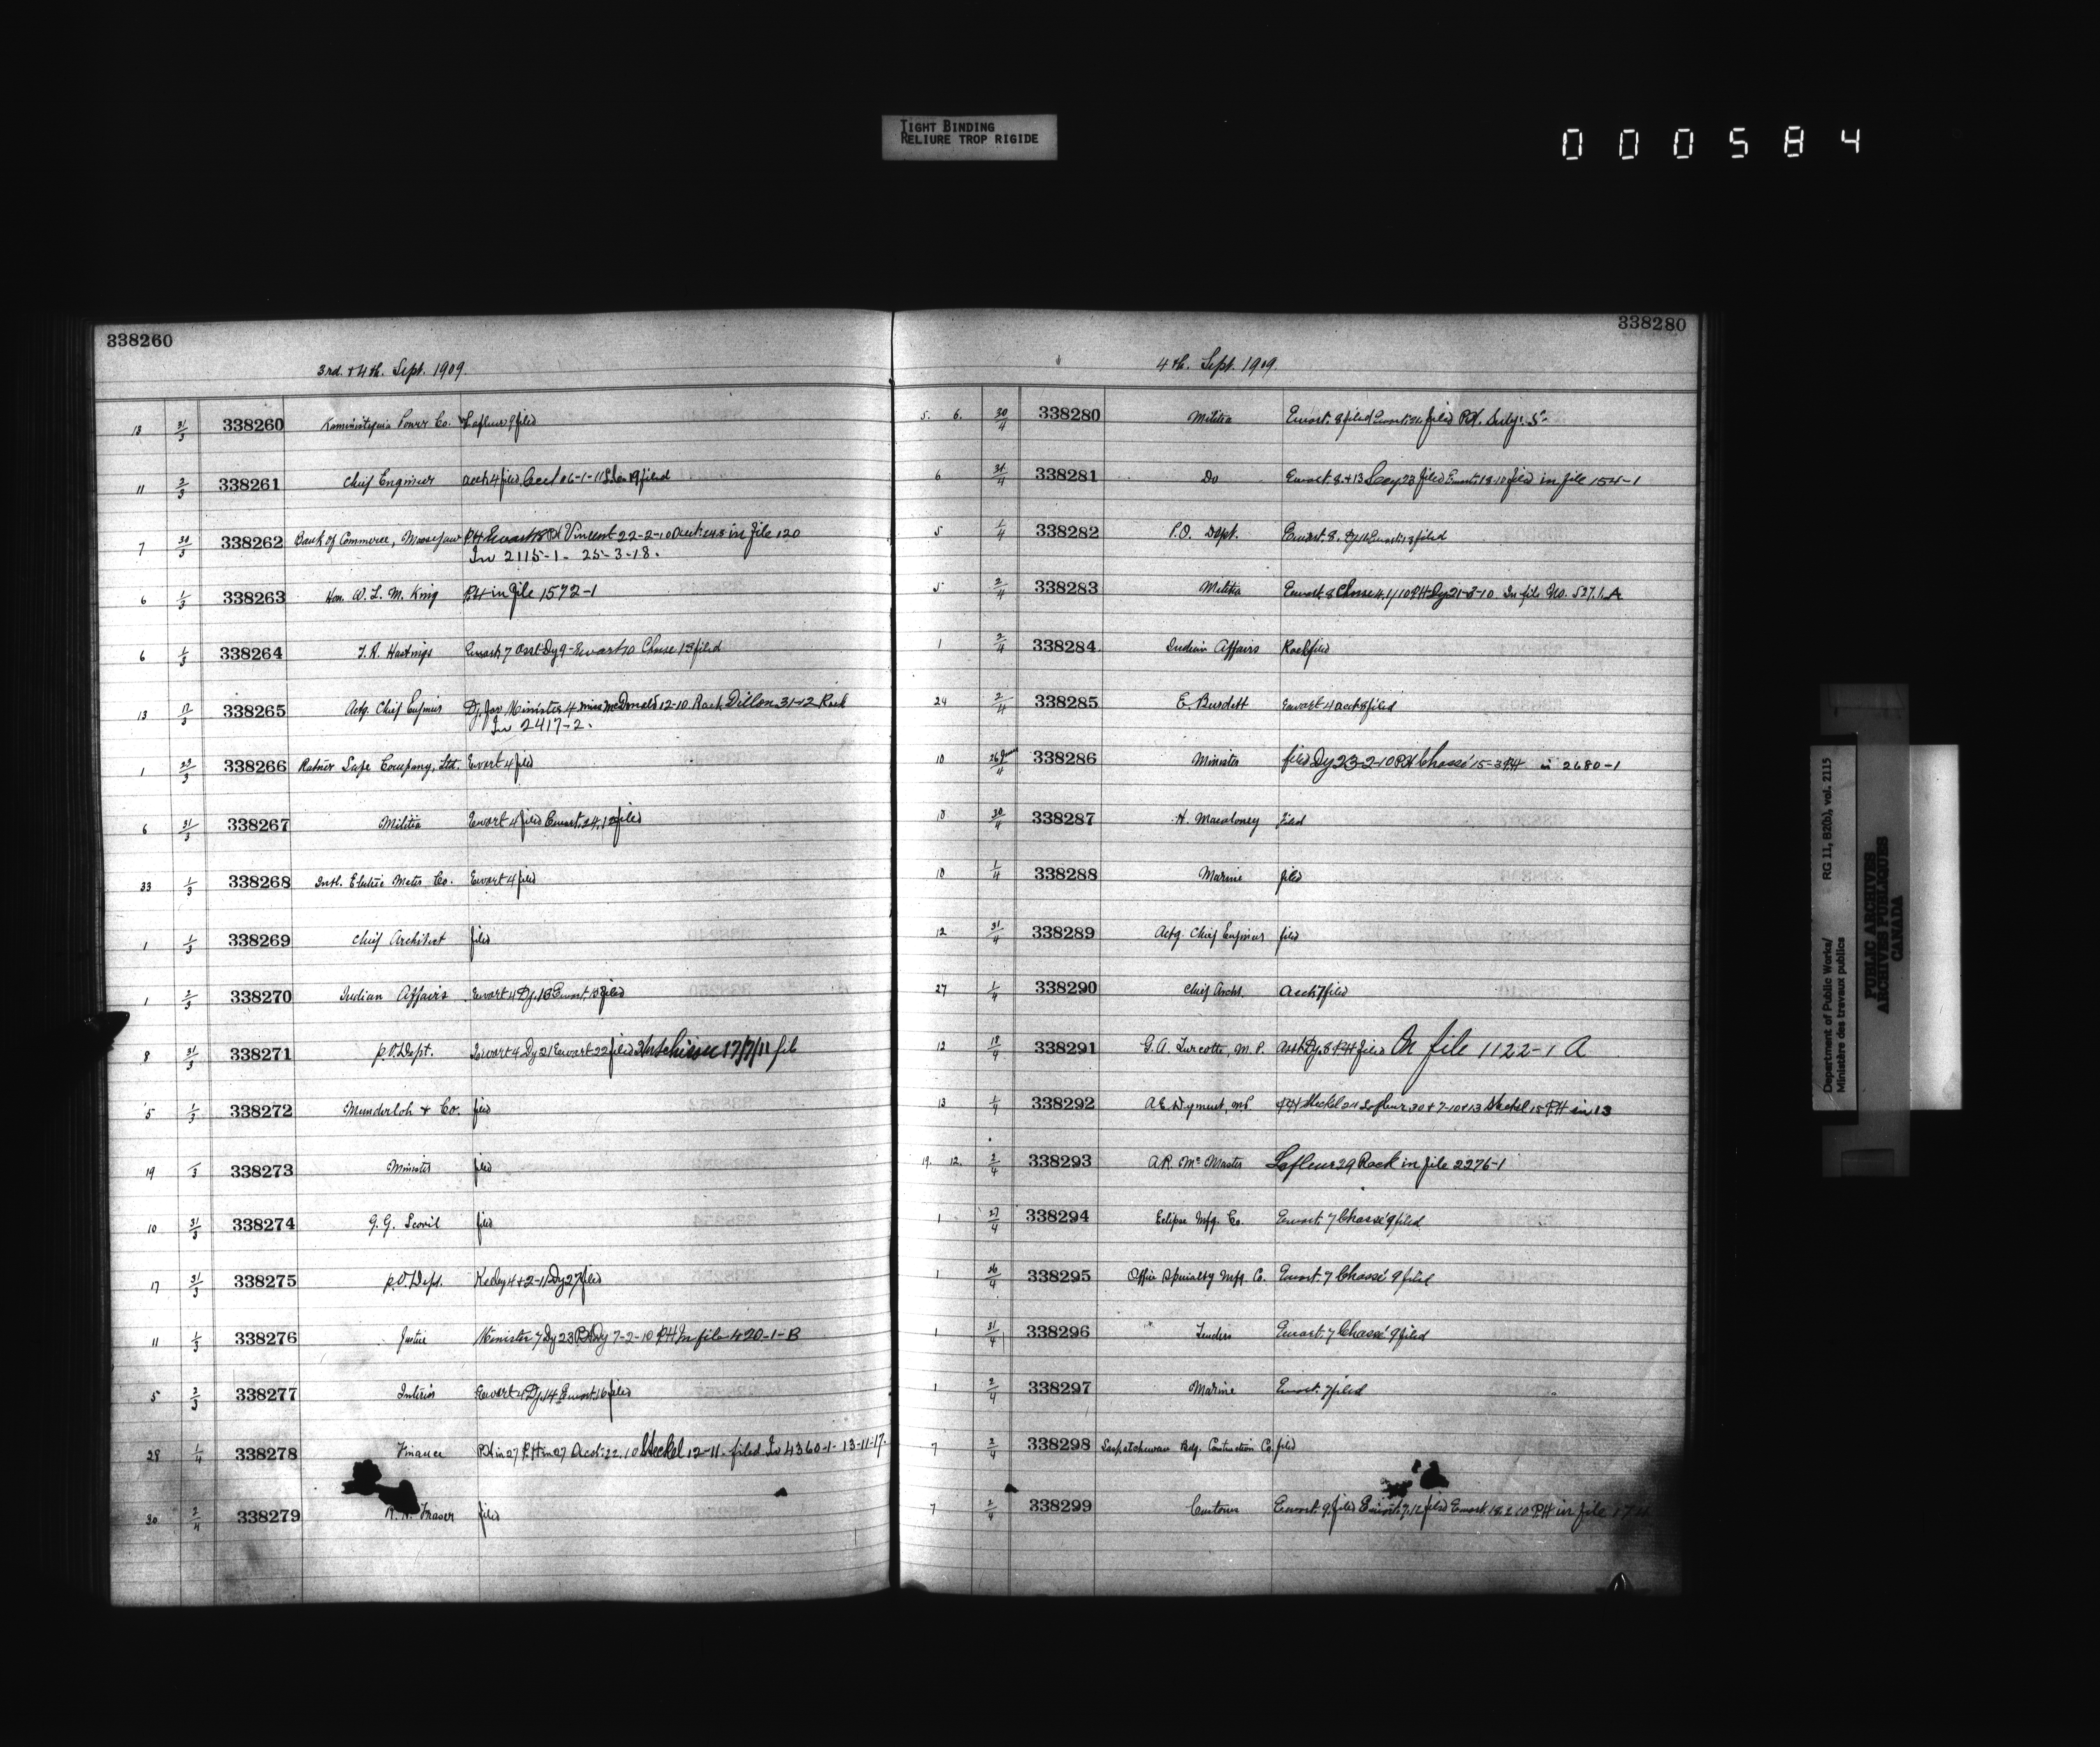 TIGHT BINDING
RELIURE TROP RIGIDE
000584
338260
3rd. & 4th. Sept. 1909.
13 31/3 338260 Kaministiquia Power Co. Lafleur 9 filed
11 2/3 338261 Chief Engineer acct. 4 filed. Acct 16-1-11 19 filed
7 30/3 338262 Bank of Commerce, Moosejaw P.H. Ewart 8 P.H. Vincent 22-2-10 in file 120
In 2115-1- 25-3-18.
6 1/3 338263 Hon. W. L. M. King P.H in file 1572-1
6 1/3 338264 T. R. Hastings Ewart 7 asst Dy 9- Ewart 10 Chasse 13 filed
13 17/3 338265 Actg. Chief Engineer Dy. for Minister 4 miss McDonald 12-10 Rock Dillon 31-12 Rock
In 2417-2.
1 23/3 338266 Ratner Safe Company, Ltd. Ewart 4 filed
6 31/3 338267 Militia Ewart 4 filed Ewart. 24.12 filed
33 1/3 338268 Intl. Electric Meter Co. Ewart 4 filed
1 1/3 338269 Chief Architect filed
1 2/3 338270 Indian Affairs Ewart 4 Dy. 16 Ewart. 18 filed
8 31/3 338271 P.O. Dept. Ewart 4 Dy 21 Ewart 22 filed Hutchison 17/7/11 file
5 1/3 338272 Munderloh & Co. filed
19 /3 338273 Minister filed
10 31/3 338274 G. G. Scovil filed
17 31/3 338275 P.O. Dept. Keeley 4 & 2-11 Dy 27 filed
11 1/3 338276 Justice Minister 7 Dy 23 P.H. Dy 7-2-10 P.H In file 420-1-B
5 2/3 338277 Interior Ewart 4 Dy. 14 Ewart. 16 filed
28 1/4 338278 Finance P.H in 27 P.H in 27 Acct: 22.10 Steckel 12-11. filed In 4360-1- 13-11-17.
30 2/4 338279 Fraser filed
338280
4th. Sept. 1909.
5. 6. 30/4 338280 Militia Ewart. 8 filed Ewart. filed P.H. Subj: S-
6 31/4 338281 Do Ewart. 8 & 13 23 filed Ewart. 18-10 filed in file 154-1
5 1/4 338282 P.O. Dept. Ewart. 8. Dy 11 Ewart: 13 filed
5 2/4 338283 Militia Ewart. 8 Chasse 4.1/10 P.H. Dy 21-3-10 In file No. 527.1.A
1 2/4 338284 Indian Affairs Rock filed
24 2/4 338285 E. Burdett Ewart 4 acct 8 filed
10 26 June/4 338286 Minister filed Dy 23-2-10 P.H. Chassé 15-3 P.H in 2680-1
10 30/4 338287 H. Macaloney filed
10 1/4 338288 Marine filed
12 31/4 338289 Actg. Chief Engineer filed
27 1/4 338290 Chief Archt. Acct 7 filed
12 18/4 338291 G. A. Turcotte, M. P. Asst Dy. 8 P.H filed On file 1122-1 A
13 1/4 338292 A. E. Dyment, MP P.H Steckel 24 Lafleur 30 & 7-10 & 13 Steckel 15 P.H in 13
19. 12. 2/4 338293 A. R. McMaster Lafleur 29 Rock in file 2276-1
1 27/4 338294 Eclipse Mfg. Co. Ewart. 7 Chassé 9 filed
1 26/4 338295 Office Specialty Mfg. Co. Ewart. 7 Chassé 9 filed
1 31/4 338296 Tenders Ewart. 7 Chassé 9 filed
1 2/4 338297 Marine Ewart. 7 filed
7 2/4 338298 Saskatchewan Bdg. Contruction Co. filed
7 2/4 338299 Customs Ewart. 9. filed Ewart. 7.12 filed Ewart. 18.2.10 P.H in file
Department of Public Works/ RG 11, B2(b), vol. 2115
Ministère des travaux publics
PUBLIC ARCHIVES
ARCHIVES PUBLIQUES
CANADA